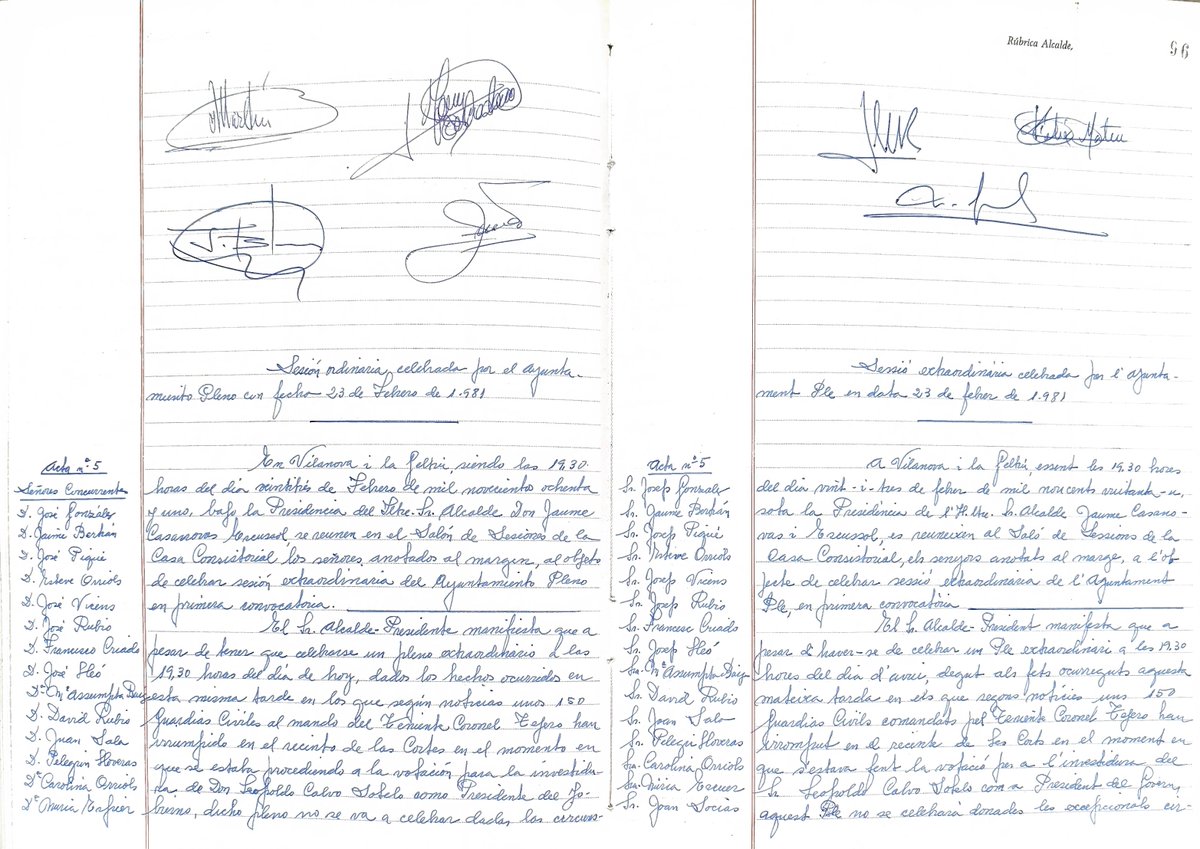 Martín
Jaume
Sesión ordinaria, celebrada por el Ayunta-
miento Pleno con fecha 23 de Febrero de 1.981
Acta nº 5
Señores Concurrentes
D. José González
D. Jaume Bertrán
D. José Piqué
D. Esteve Orriols
D. José Vicens
D. José Rubio
D. Francisco Criado
D. José Lleó
Dª Mª Assumpta Baig
D. David Rubio
D. Juan Sala
D. Pelegrin Lloveras
Dª Carolina Orriols
Dª Nuria
En Vilanova i la Geltrú, siendo las 19,30
horas del día veintitrés de Febrero de mil noveciento ochenta
y uno, bajo la Presidencia del Iltre. Sr. Alcalde Don Jaume
Casanovas Escussol, se reunen en el Salón de Sesiones de la
Casa Consistorial los señores, anotados al margen, al objeto
de celebrar sesión extraordinaria del Ayuntamiento Pleno
en primera convocatoria.
El Sr. Alcalde-Presidente manifiesta que a
pesar de tener que celebrarse un pleno extraordinario a las
19,30 horas del día de hoy, dados los hechos ocurridos en
esta misma tarde en los que según noticias unos 150
Guardias Civiles al mando del Teniente Coronel Tejero han
irrumpido en el recinto de las Cortes en el momento en
que se estaba procediendo a la votación para la investidu-
ra de Don Leopoldo Calvo Sotelo como Presidente del Go-
bierno, dicho pleno no se va a celebrar dadas las circuns-
Rúbrica Alcalde,
96
Mateu
Sessió extraordinària celebrada per l'Ajunta-
ment Ple en data 23 de febrer de 1.981
Acta nº 5
Sr. Josep González
Sr. Jaume Bertrán
Sr. Josep Piqué
Sr. Esteve Orriols
Sr. Josep Vicens
Sr. Josep Rubio
Sr. Francesc Criado
Sr. Josep Lleó
Sra. Mª Assumpta Baig
Sr. David Rubio
Sr. Joan Sala
Sr. Pelegrí Lloveras
Sra. Carolina Orriols
Sra. Núria
Sr. Joan Socias
A Vilanova i la Geltrú, essent les 19,30 hores
del dia vint-i-tres de febrer de mil noucents vuitanta-u,
sota la Presidencia de l'Iltre. Sr. Alcalde Jaume Casano-
vas i Escussol, es reuneixen al Saló de Sessions de la
Casa Consistorial, els senyors anotats al marge, a l'ob
jecte de celebrar sessió extraordinaria de l'Ajuntament
Ple, en primera convocatòria
El Sr. Alcalde-President manifesta que a
pesar d'haver-se de celebrar un Ple extraordinari a les 19,30
hores del dia d'avui, degut als fets ocurreguts aquesta
mateixa tarda en els que segons notícies uns 150
Guardias Civils comandats pel Teniente Coronel Tejero han
irromput en el recinte de les Corts en el moment en
que s'estava fent la votació per a l'investidura del
Sr. Leopoldo Calvo Sotelo com a President del Govern,
aquest Ple no se celebrarà donades les excepcionals cir-